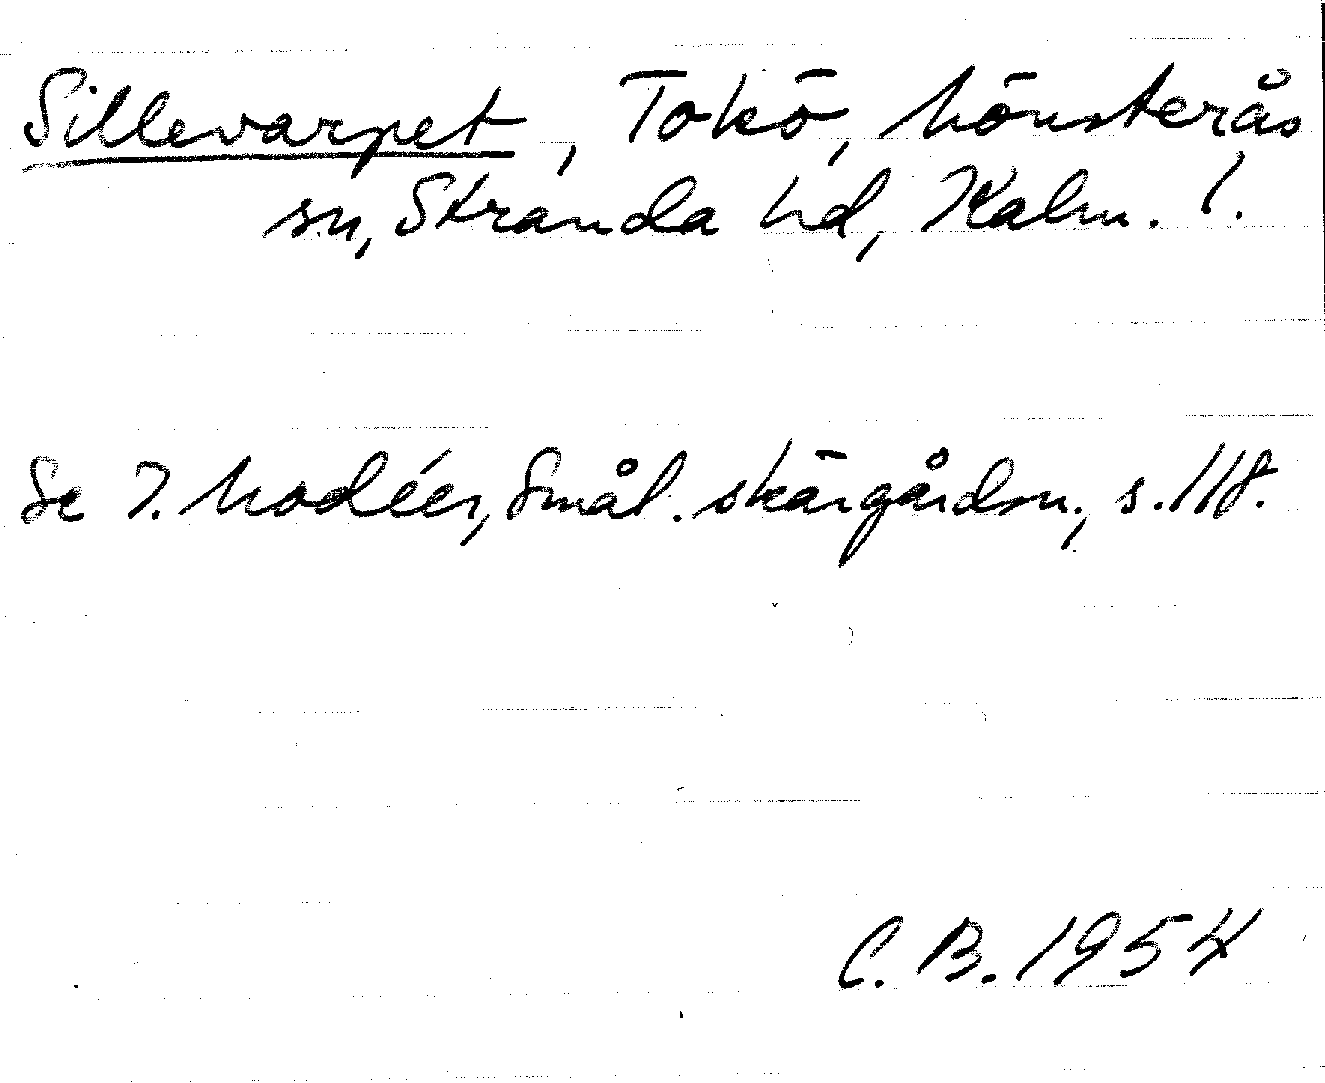 Sillevarpet, Tokö, Mönsterås
sn, Stranda hd, Kalm. l.
Se I. Modéer, Smål. skärgårdsn., s. 118.
C. B. 1954